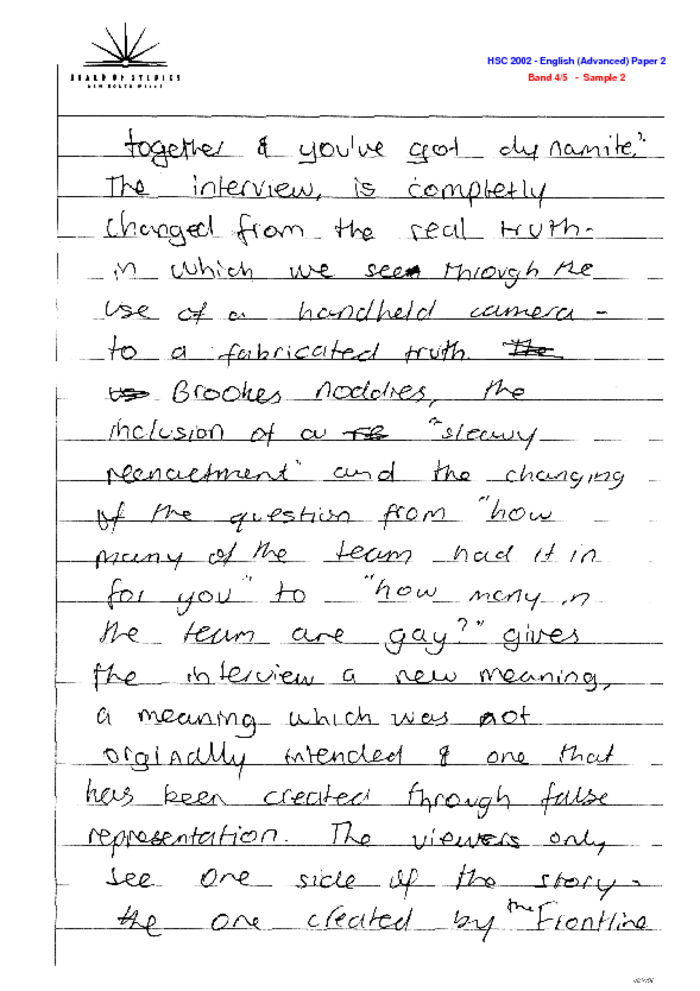 BOARD OF STUDIES
NEW SOUTH WALES
HSC 2002 - English (Advanced) Paper 2
Band 4/5 - Sample 2
together & you've got dynamite."
The interview, is completly
changed from the real truth -
in which we see through the
use of a handheld camera -
to a fabricated truth. The
Brookes noddies, the
inclusion of a "sleavy
reenactment" and the changing
of the question from "how
many of the team had it in
for you" to "how many in
the team are gay?" gives
the interview a new meaning,
a meaning which was not
orginally intended & one that
has been created through false
representation. The viewers only
see one side of the story -
the one created by the Frontline